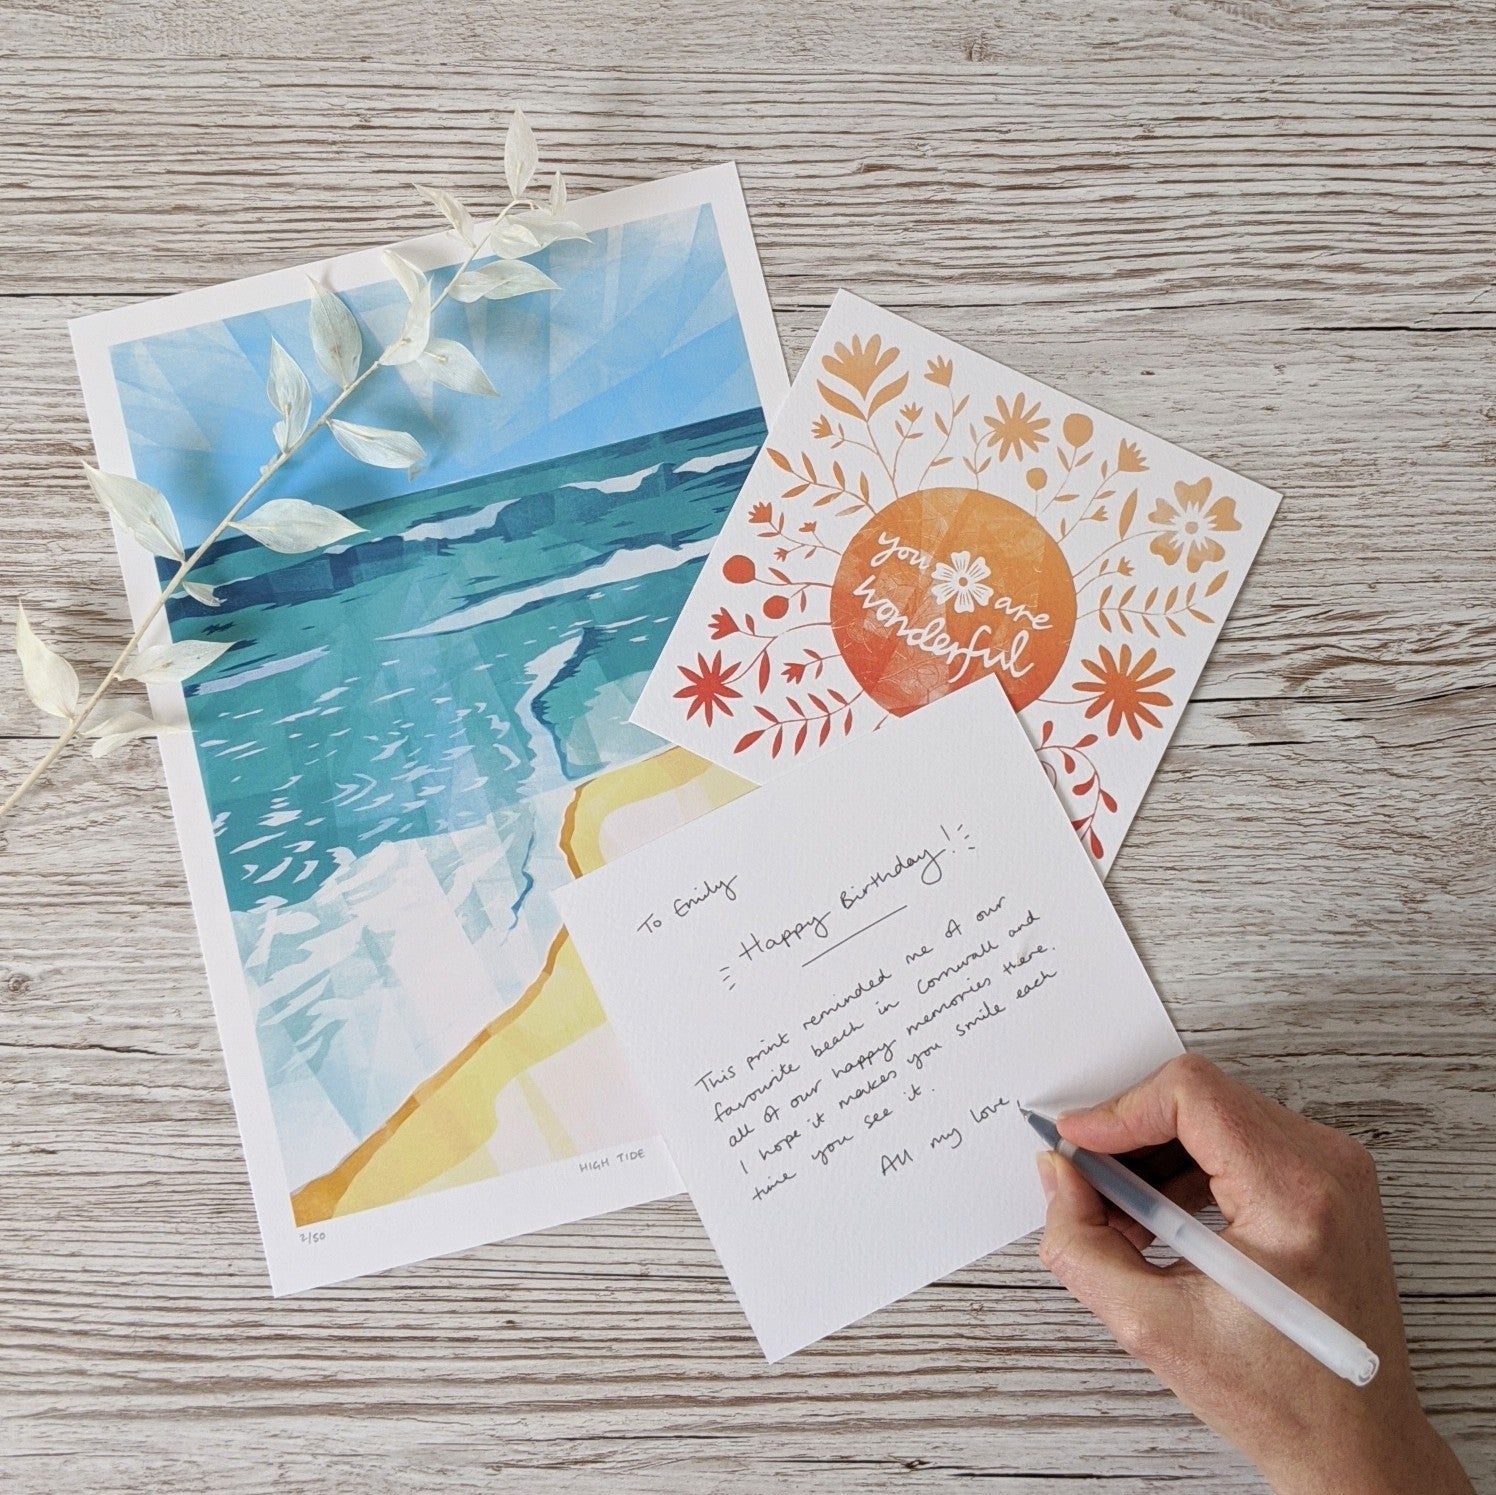 you are
wonderful
To Emily
Happy Birthday!
This print reminded me of our
favourite beach in Cornwall and
all of our happy memories there.
I hope it makes you smile each
time you see it.
All my love,
HIGH TIDE
2/50